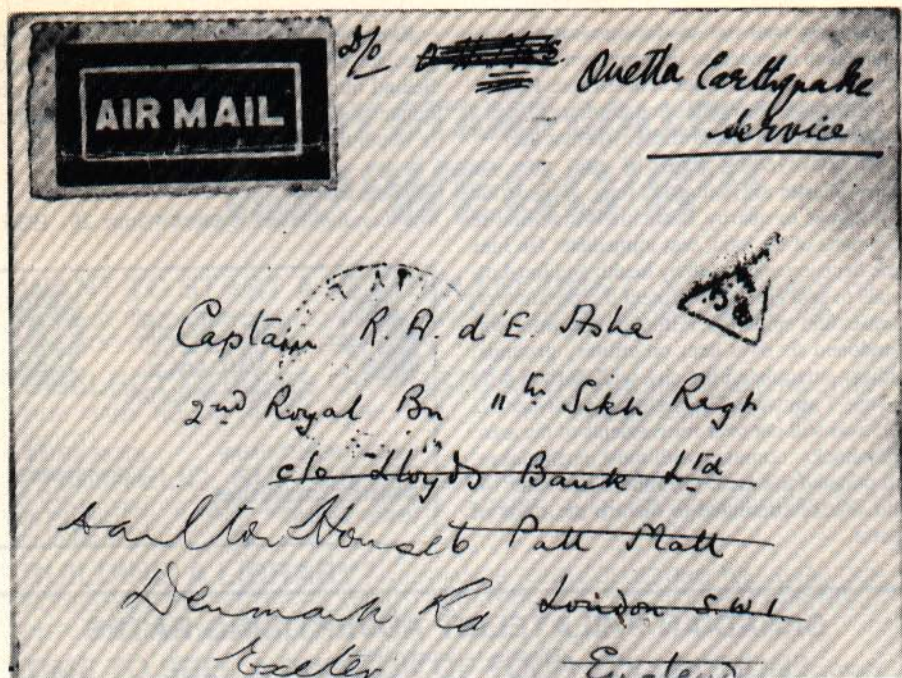 AIR MAIL
Quetta Earthquake
Service
Captain R. A. d'E. Ashe
2nd Royal Bn 11th Sikh Regt
c/o Lloyds Bank Ltd
House 6 Pall Mall
Denmark Rd London S.W.1.
Exeter England